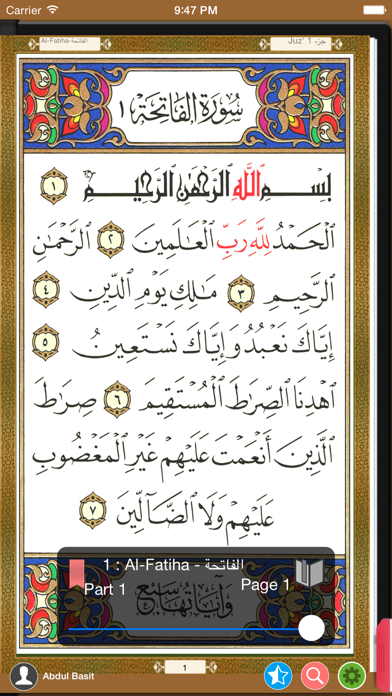 Carrier 9:47 PM
Al-Fatiha-الفاتحة Juz' 1 جزء
سُورَةُ الفَاتِحَةِ ١
بِسْمِ ٱللَّهِ ٱلرَّحْمَٰنِ ٱلرَّحِيمِ ١
ٱلْحَمْدُ لِلَّهِ رَبِّ ٱلْعَٰلَمِينَ ٢ ٱلرَّحْمَٰنِ
ٱلرَّحِيمِ ٣ مَٰلِكِ يَوْمِ ٱلدِّينِ ٤
إِيَّاكَ نَعْبُدُ وَإِيَّاكَ نَسْتَعِينُ ٥
ٱهْدِنَا ٱلصِّرَٰطَ ٱلْمُسْتَقِيمَ ٦ صِرَٰطَ
ٱلَّذِينَ أَنْعَمْتَ عَلَيْهِمْ غَيْرِ ٱلْمَغْضُوبِ
عَلَيْهِمْ وَلَا ٱلضَّآلِّينَ ٧
1 : Al-Fatiha - الفاتحة
Part 1 Page 1
وآياتها سبع
1
Abdul Basit